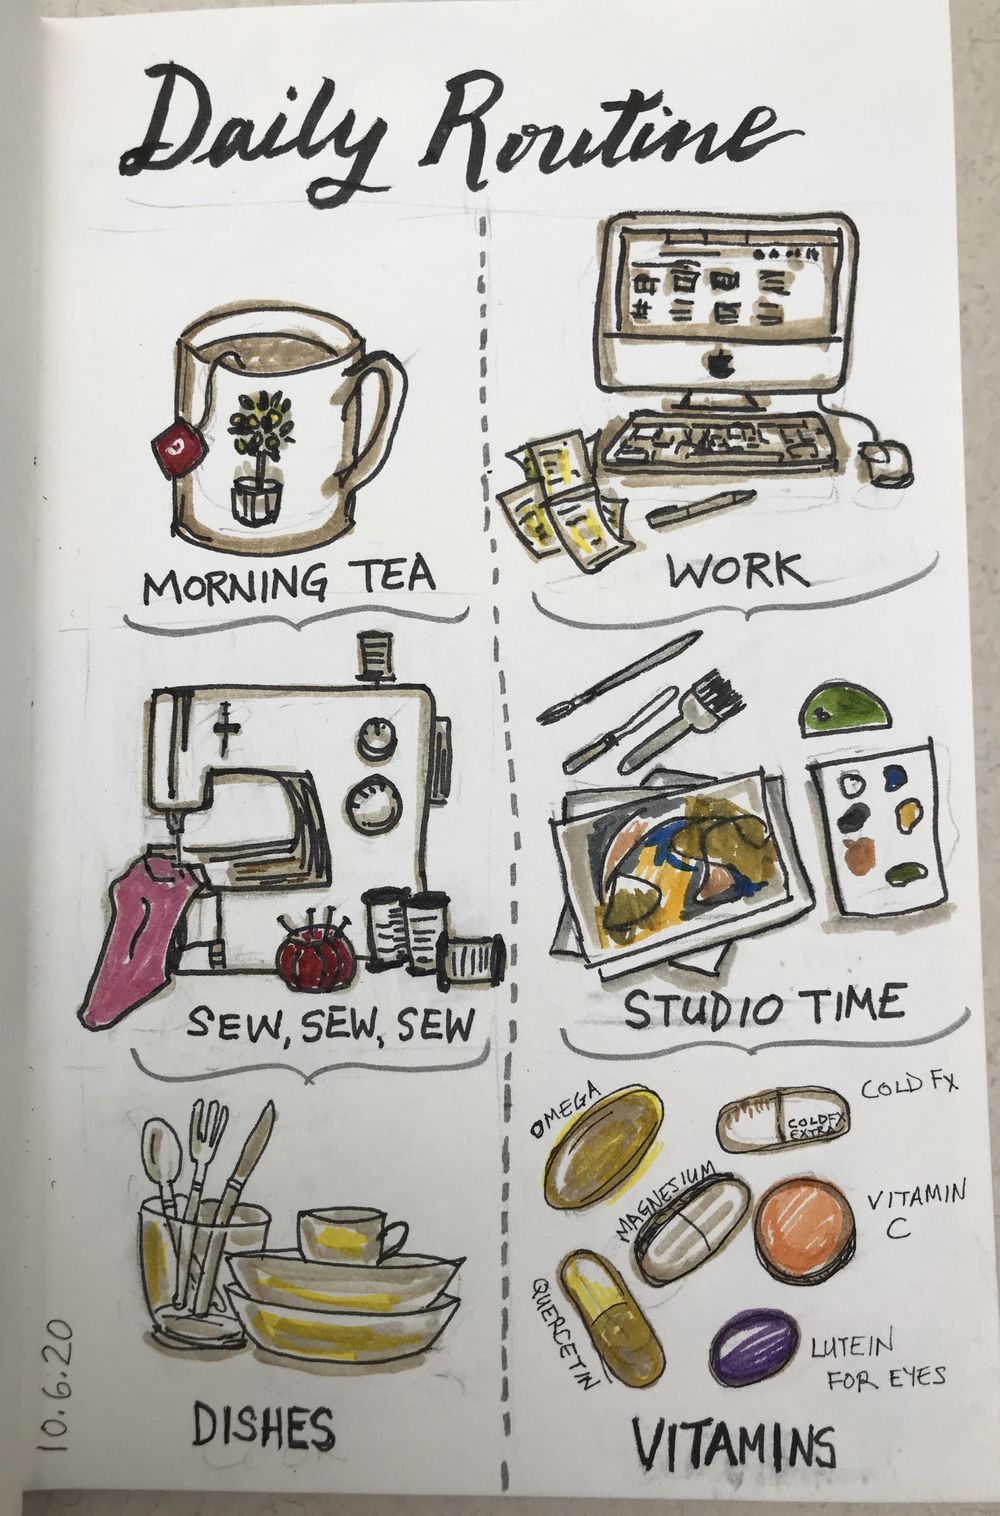 Daily Routine
MORNING TEA
WORK
SEW, SEW, SEW
STUDIO TIME
OMEGA
COLD FX
COLDFX
EXTRA
MAGNESIUM
VITAMIN
C
QUERCETIN
LUTEIN
FOR EYES
DISHES
VITAMINS
10.6.20